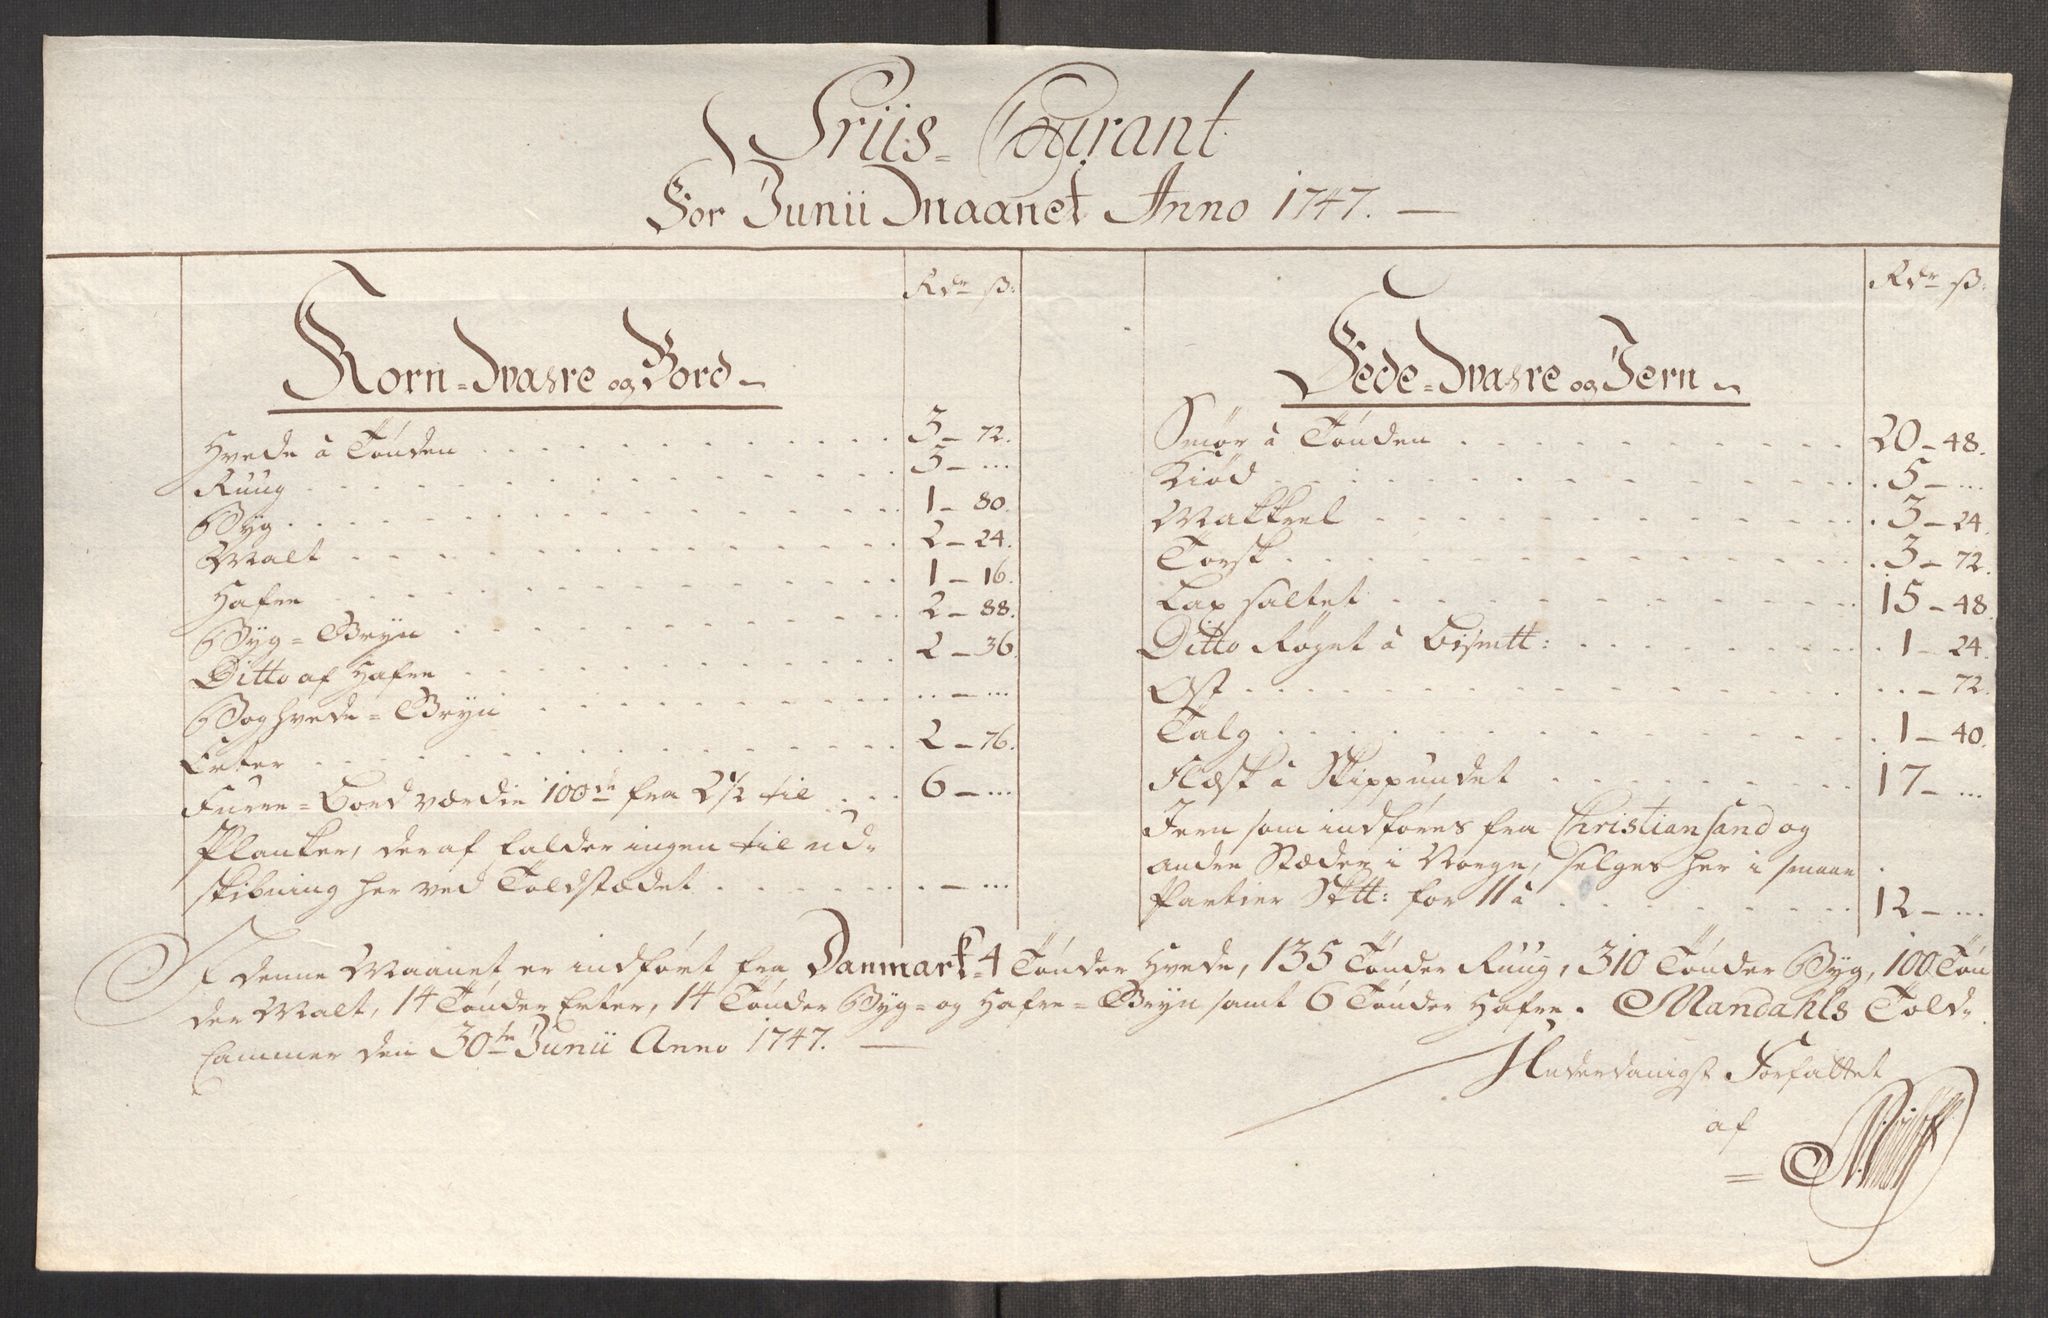 Priis-Courant
For Junii Maanet Anno 1747.
Rdr ß:
Korn-Waare og Bord
Hvede à Tønden 3-72.
Ruug 3-...
Byg 1-80.
Malt 2-24.
Hafre 1-16.
Byg=Gryn 2-88.
Ditto af Hafre 2-36.
Boghvede=Gryn ..-...
Erter 2-76.
Furre=Bord værdie 100de fra 2½ til 6-...
Planker, deraf falder ingen til ud-
skibning her ved Toldstædet .-...
Rdr ß:
Fede-Waare og Jern
Smør à Tønden 20-48.
Kiød 5-...
Makkrel 3-24.
Torsk 3-72.
Lax saltet 15-48
Ditto Røget à Bismtt: 1-24.
Ost ..-72.
Talg 1-40.
Flæsk à Skippundet 17-...
Jern som indføres fra Christiansand og
andre Stæder i Norge, selges her i smaae
Partier Sktt: for 11 à 12-...
I denne Maanet er indført fra Danmark 4 Tønder Hvede, 135 Tønder Ruug, 310 Tønder Byg, 100 Tøn
der Malt, 14 Tønder Erter, 14 Tønder Byg= og Hafre=Gryn samt 6 Tønder Hafre. Mandahls Told-
Cammer den 30te Junii Anno 1747.
Underdanigst Forfattet
af